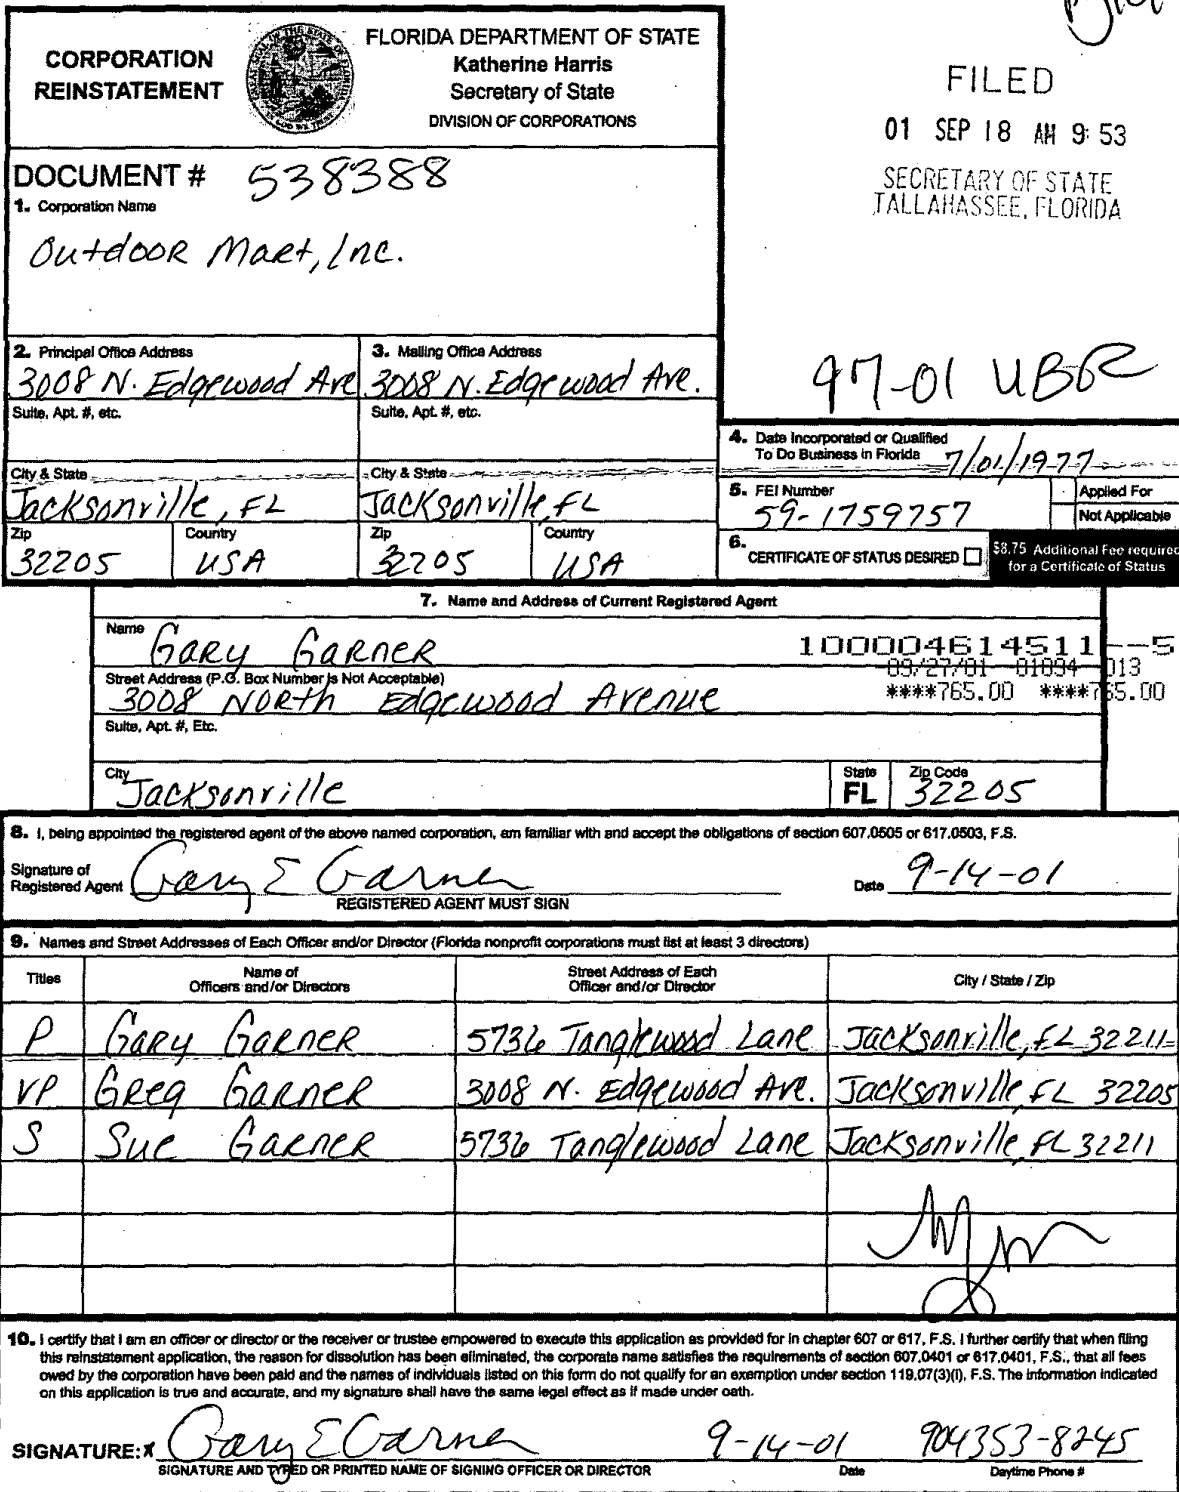 CORPORATION
REINSTATEMENT
FLORIDA DEPARTMENT OF STATE
Katherine Harris
Secretary of State
DIVISION OF CORPORATIONS
FILED
01 SEP 18 AM 9:53
SECRETARY OF STATE
TALLAHASSEE, FLORIDA
DOCUMENT # 538388
1. Corporation Name
Outdoor Mart, Inc.
2. Principal Office Address
3008 N. Edgewood Ave
3. Mailing Office Address
3008 N. Edgewood Ave.
Suite, Apt. #, etc.
Suite, Apt. #, etc.
97-01 UBR
City & State
Jacksonville, FL
City & State
Jacksonville, FL
Zip
32205
Country
USA
Zip
32205
Country
USA
4. Date Incorporated or Qualified
To Do Business in Florida 7/01/1977
5. FEI Number
59-1759757
Applied For
Not Applicable
6. CERTIFICATE OF STATUS DESIRED
$8.75 Additional Fee required
for a Certificate of Status
7. Name and Address of Current Registered Agent
Name
Gary Garner
100004614511--5
09/27/01 01094 013
****765.00 ****765.00
Street Address (P.O. Box Number is Not Acceptable)
3008 North Edgewood Avenue
Suite, Apt. #, Etc.
City
Jacksonville
State
FL
Zip Code
32205
8. I, being appointed the registered agent of the above named corporation, am familiar with and accept the obligations of section 607.0505 or 617.0503, F.S.
Signature of
Registered Agent Gary E Garner
REGISTERED AGENT MUST SIGN
Date 9-14-01
9. Names and Street Addresses of Each Officer and/or Director (Florida nonprofit corporations must list at least 3 directors)
Titles
Name of
Officers and/or Directors
Street Address of Each
Officer and/or Director
City / State / Zip
P Gary Garner 5736 Tanglewood Lane Jacksonville, FL 32211
VP Greg Garner 3008 N. Edgewood Ave. Jacksonville, FL 32205
S Sue Garner 5736 Tanglewood Lane Jacksonville, FL 32211
10. I certify that I am an officer or director or the receiver or trustee empowered to execute this application as provided for in chapter 607 or 617, F.S. I further certify that when filing
this reinstatement application, the reason for dissolution has been eliminated, the corporate name satisfies the requirements of section 607.0401 or 617.0401, F.S., that all fees
owed by the corporation have been paid and the names of individuals listed on this form do not qualify for an exemption under section 119.07(3)(i), F.S. The information indicated
on this application is true and accurate, and my signature shall have the same legal effect as if made under oath.
SIGNATURE: x Gary E Garner 9-14-01 904 353-8245
SIGNATURE AND TYPED OR PRINTED NAME OF SIGNING OFFICER OR DIRECTOR
Date
Daytime Phone #